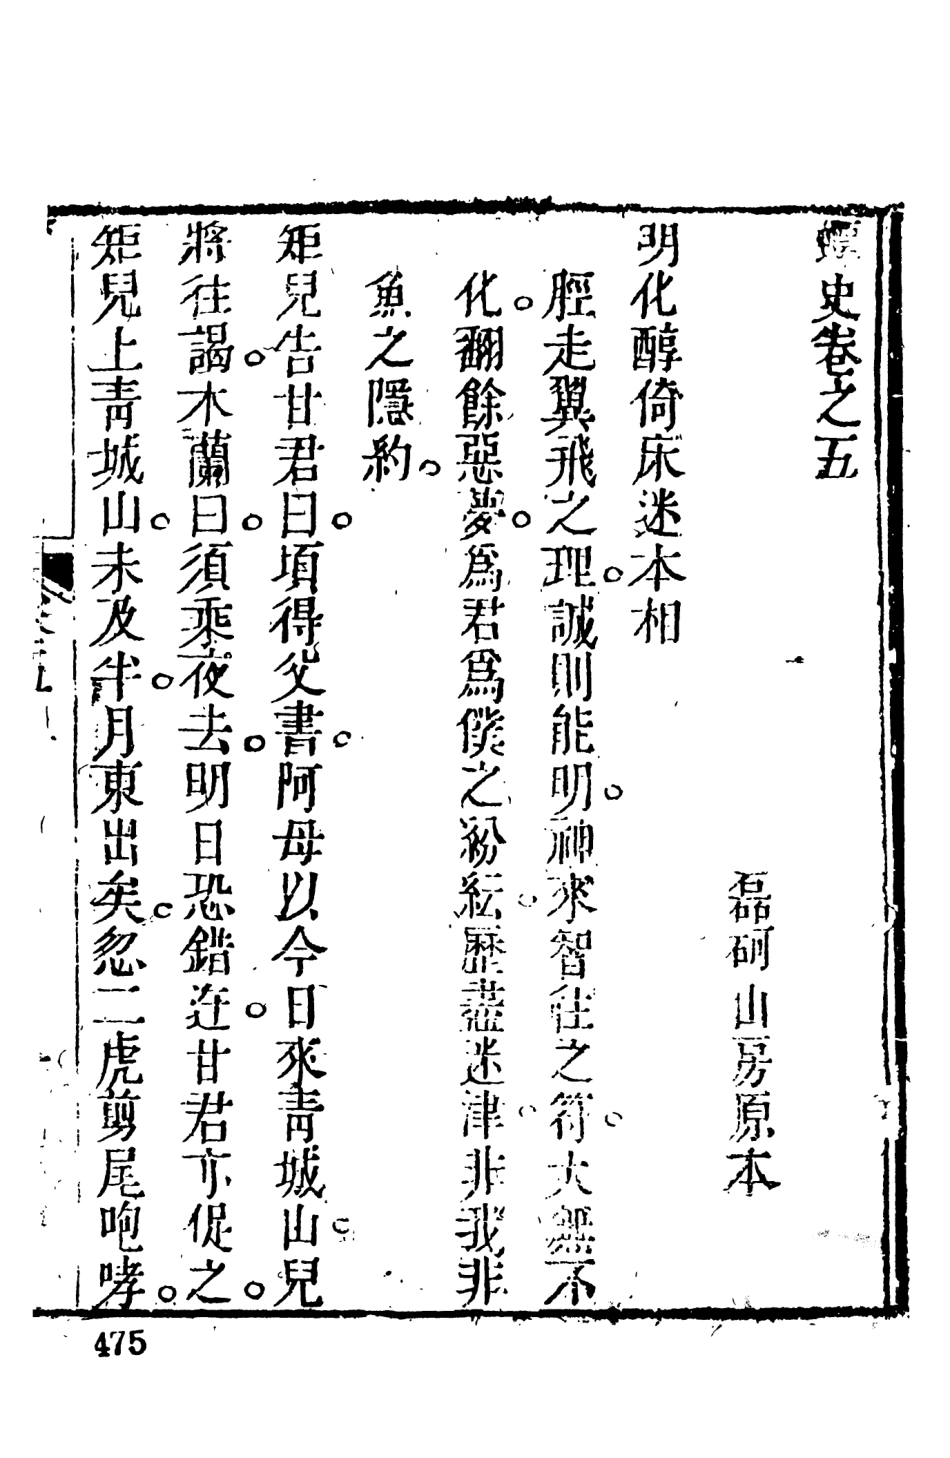 蟫史卷之五
磊砢山房原本
明化醇倚床迷本相
脛走翼飛之理。誠則能明。神來智往之符。大無不
化。翻餘惡夢。爲君爲僕之紛紜。歷盡迷津。非我非
魚之隱約。
矩兒告甘君曰。頃得父書。阿母以今日來青城山。兒
將往謁。木蘭曰。須乘夜去。明日恐錯迕。甘君亦促之。
矩兒上青城山。未及半。月東出矣。忽二虎剪尾咆哮。
475